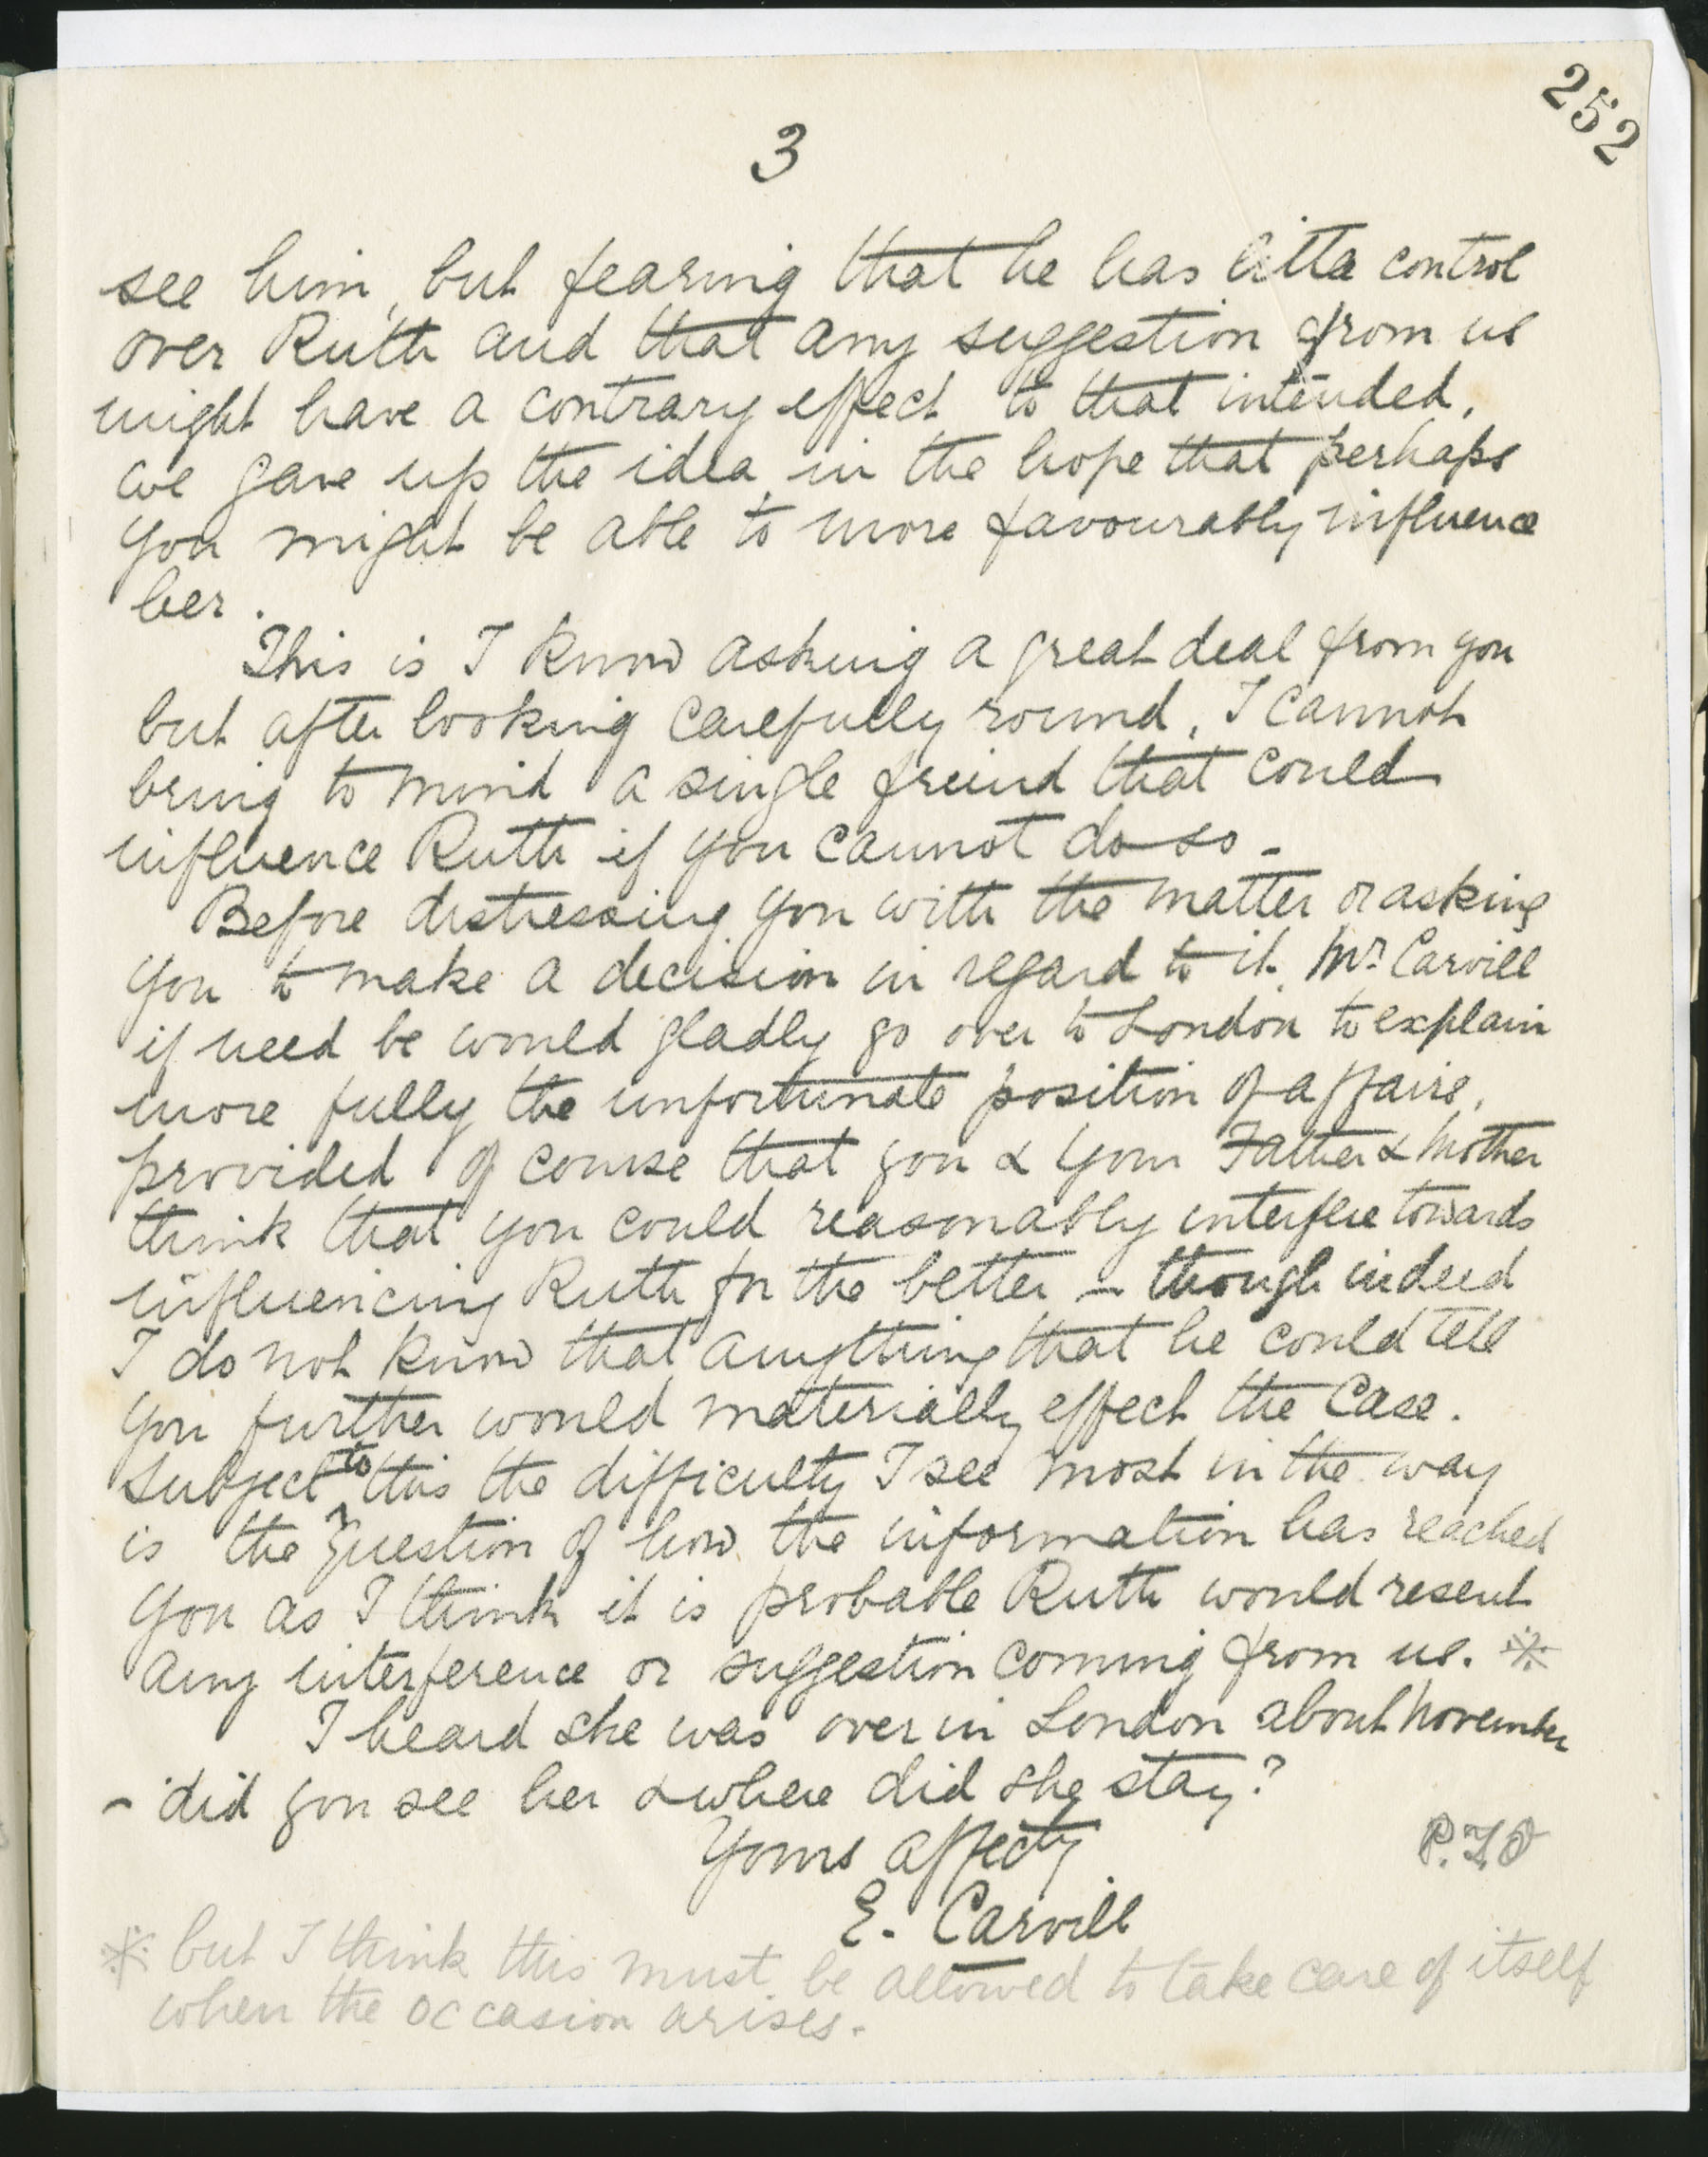 252
3
see him, but fearing that he has little control
over Ruth and that any suggestion from us
might have a contrary effect to that intended,
we gave up the idea in the hope that perhaps
you might be able to more favourably influence
her.
This is I know asking a great deal from you
but after looking carefully round, I cannot
bring to mind a single friend that could
influence Ruth if you cannot do so -
Before distressing you with the matter or asking
you to make a decision in regard to it, Mr. Carvill
if need be would gladly go over to London to explain
more fully the unfortunate position of affairs,
provided of course that you & your Father & Mother
think that you could reasonably interfere towards
influencing Ruth for the better - though indeed
I do not know that anything that he could tell
you further would materially effect the case.
Subject to this the difficulty I see most in the way
is the question of how the information has reached
you as I think it is probable Ruth would resent
any interference or suggestion coming from us. ※
I heard she was over in London about November
- did you see her & where did she stay?
Yours affecty
P.T.O
E. Carvill
※ but I think this must be allowed to take care of itself
when the occasion arises.